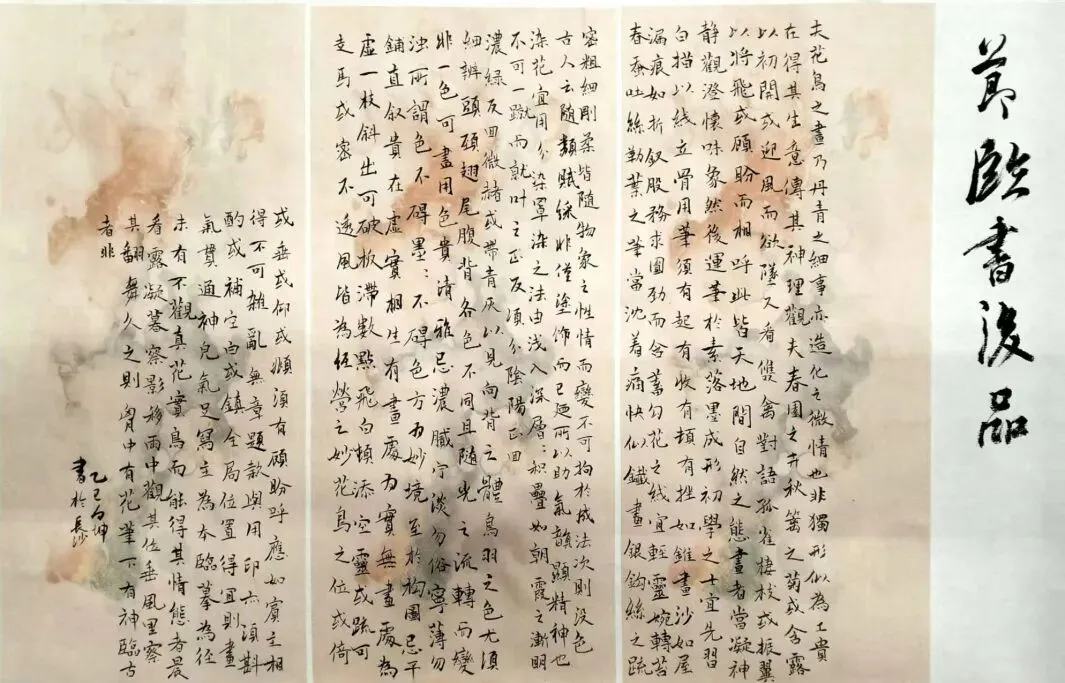 節臨書後品
夫花鳥之畫乃丹青之細事亦造化之微情也非獨形似為工貴
在得其生意傳其神理觀夫春園之卉秋篱之菊或含露
以初開或迎風而欲墜又看雙禽對語孤雀棲枝或振翼
以將飛或顧盼而相呼此皆天地間自然之態畫者當凝神
静觀澄懷味象然後運筆於素落墨成形初學之士宜先習
白描以綫立骨用筆須有起有收有頓有挫如錐畫沙如屋
漏痕如折釵股務求圓劲而含蓄勾花之线宜輕靈婉轉若
春蚕吐絲勒葉之筆當沈着痛快似鐵畫銀鈎絲之疏
密粗細剛柔皆隨物象之性情而變不可拘於成法次則设色
古人云随類賦綵非僅塗饰而已廼所以助氣韻顯精神也
染花宜用分染罩染之法由浅入深層:积疊如朝霞之漸明
不可一蹴而就叶之正反須分陰陽正面
濃绿反面微赭或帶青灰以見向背之體鳥羽之色尤須
細辨頭頸翅尾腹背各色不同且随光之流轉而變
非一色可盡用色貴清雅忌濃膩宁淡勿俗寧薄勿
浊所謂色不碍墨:不碍色方为妙境至於构圖忌平
鋪直叙貴在虚實相生有畫處为實無畫處為
虚一枝斜出可破板滞數點飛白頓添空靈或疏可
走馬或密不透風皆為經營之妙花鳥之位或倚
或垂或仰或頫須有顾盼呼應如賓主相
得不可雜亂無章題款與用印亦須斟
酌或補空白或鎮全局位置得宜則畫
氣貫通神完氣足寫生為本臨摹為徑
未有不觀真花實鳥而能得其情態者晨
看露凝暮察影移雨中觀其低垂風里察
其翻舞久之則胸中有花筆下有神臨古
者非
乙巳白坤
書於長沙